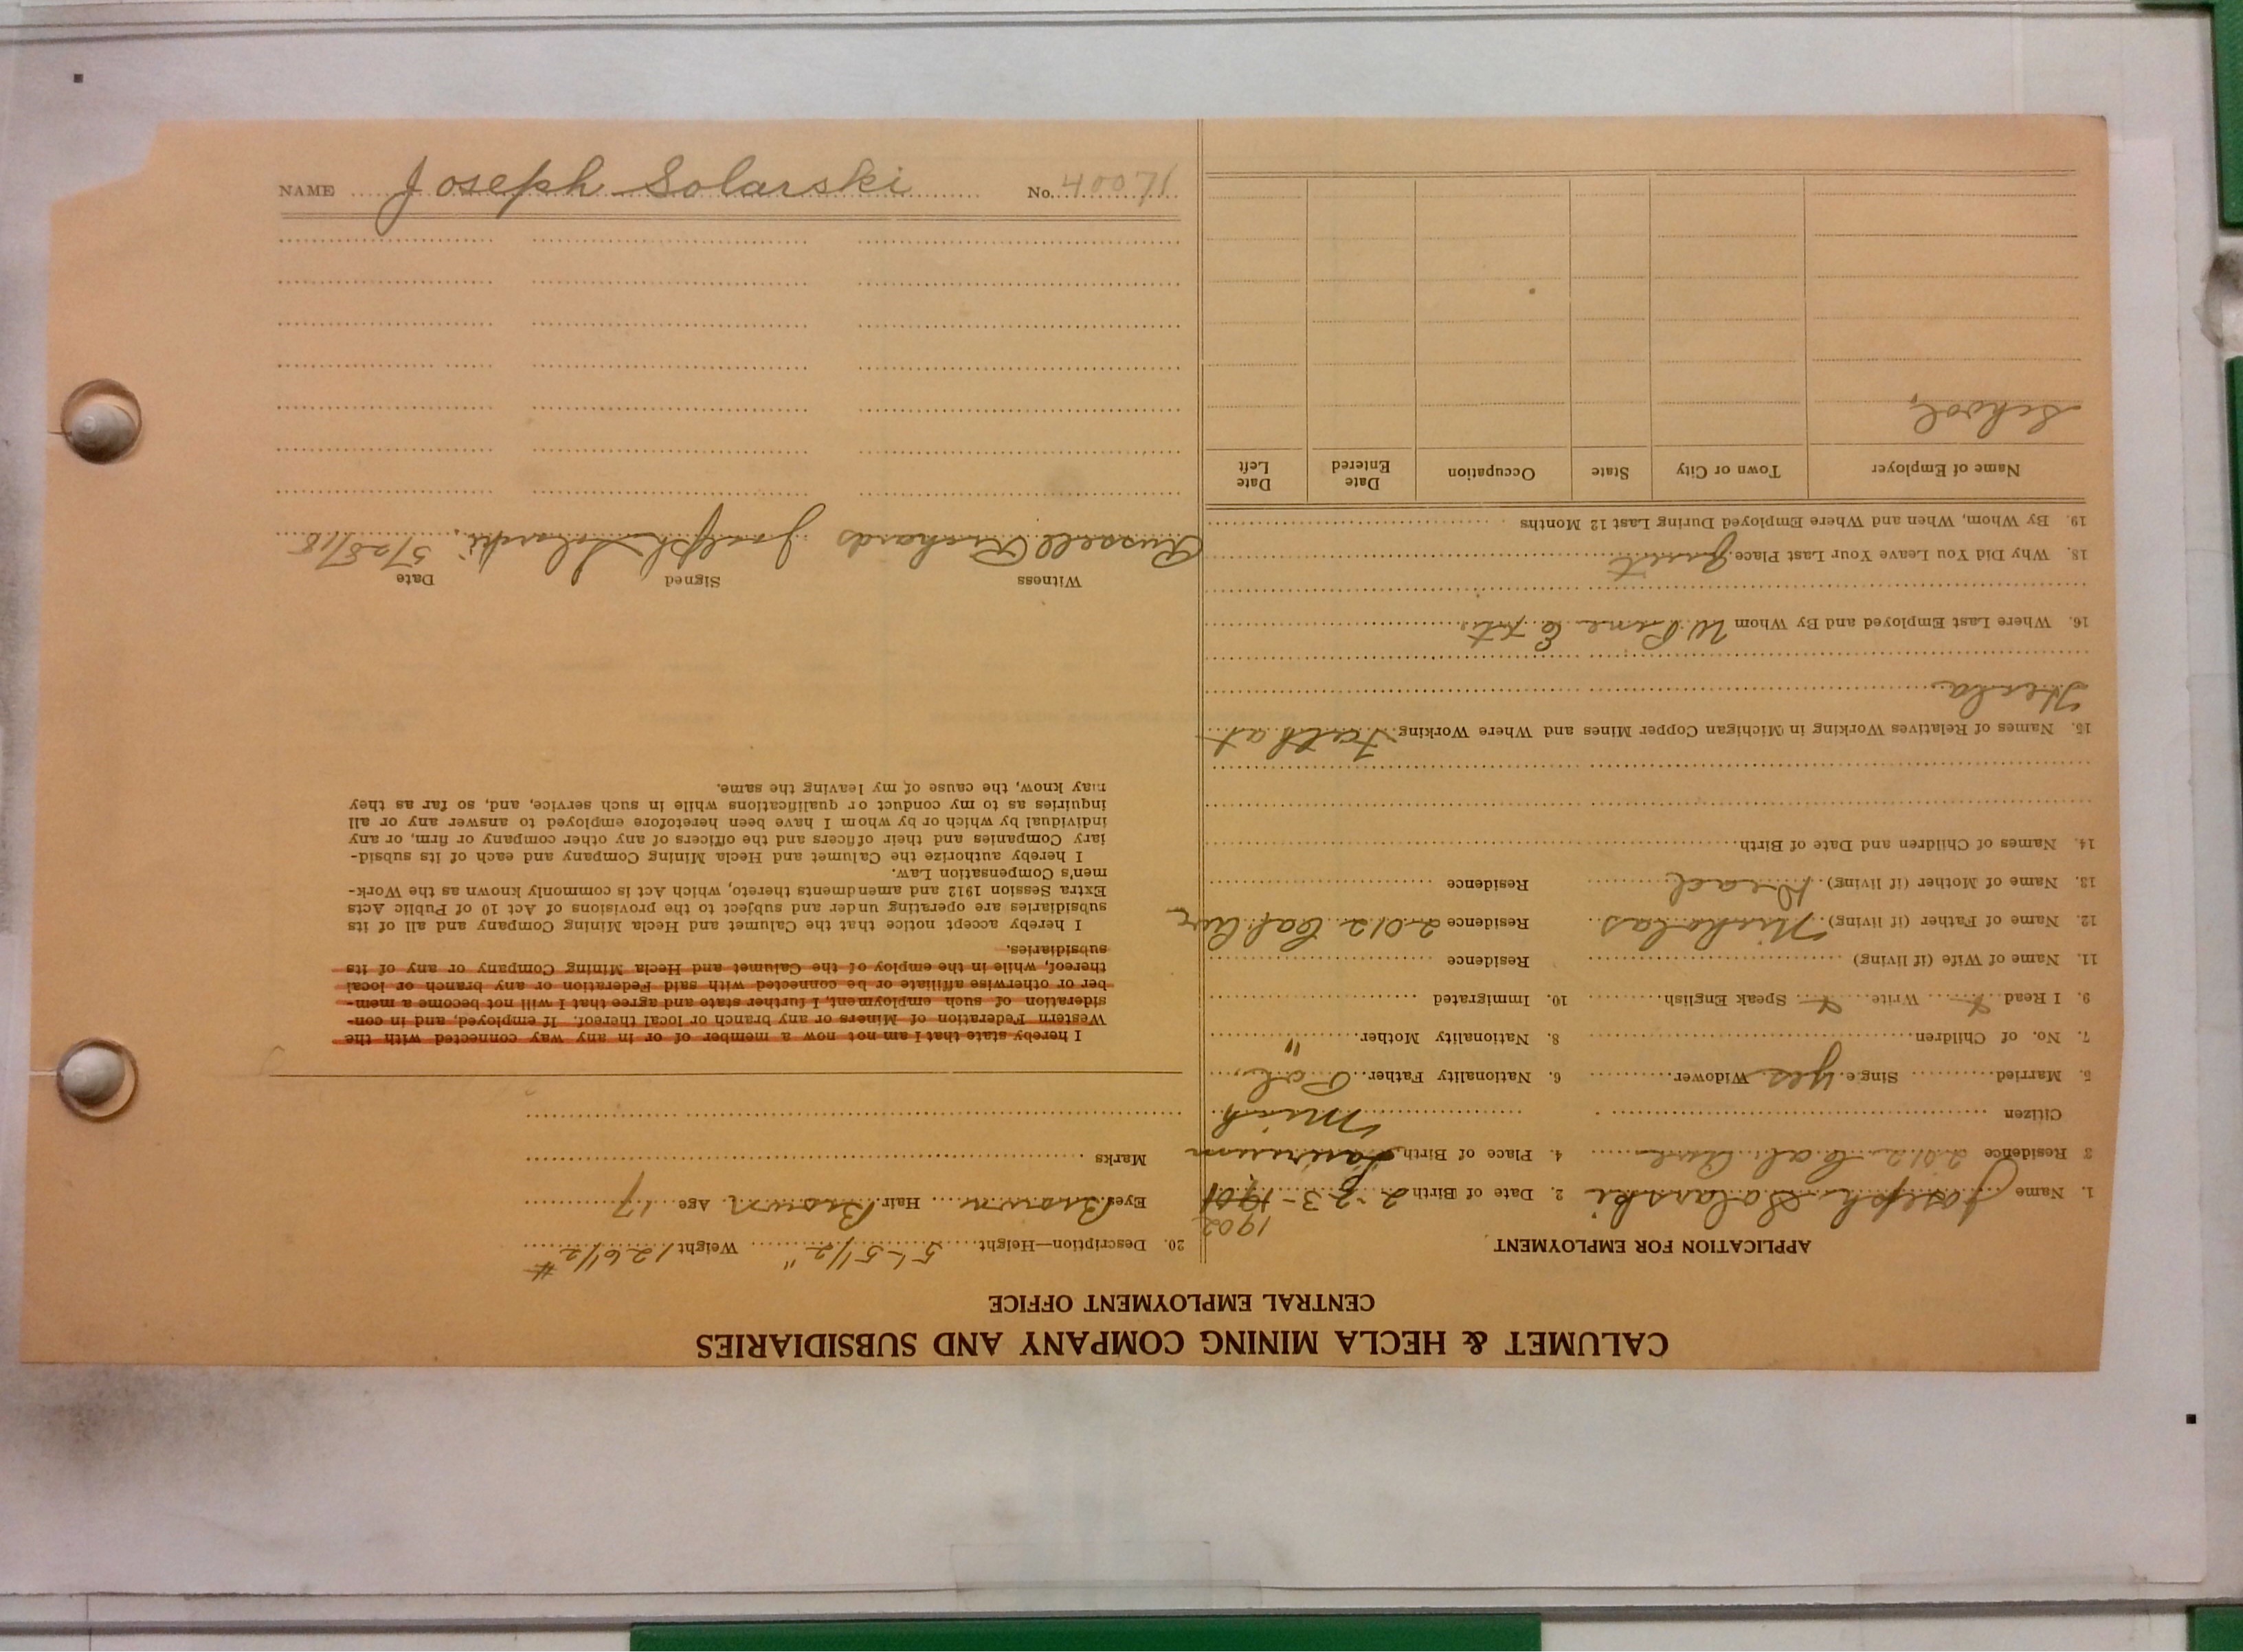 CALUMET & HECLA MINING COMPANY AND SUBSIDIARIES
CENTRAL EMPLOYMENT OFFICE
APPLICATION FOR EMPLOYMENT
1. Name Joseph Solarski 2. Date of Birth 2-23-1901 1902
3 Residence 2012 Cal. Ave 4. Place of Birth Laurium
Citizen Mich
5. Married Single yes Widower 6. Nationality Father Pol.
7. No. of Children 8. Nationality Mother "
9. I Read Write Speak English 10. Immigrated
11. Name of Wife (if living) Residence
12. Name of Father (if living) Nicholas Residence 2012 Cal. Ave
13. Name of Mother (if living) Dead Residence
14. Names of Children and Date of Birth
15. Names of Relatives Working in Michigan Copper Mines and Where Working Fath at
Hecla
16. Where Last Employed and By Whom W. Pine
18. Why Did You Leave Your Last Place Quit
19. By Whom, When and Where Employed During Last 12 Months
Name of Employer Town or City State Occupation Date Entered Date Left
School,
20. Description—Height 5'-5 1/2" Weight 126 1/2 #
Eyes Brown Hair Brown Age 17
Marks
I hereby state that I am not now a member of or in any way connected with the
Western Federation of Miners or any branch or local thereof. If employed, and in con-
sideration of such employment, I further state and agree that I will not become a mem-
ber or otherwise affiliate or be connected with said Federation or any branch or local
thereof, while in the employ of the Calumet and Hecla Mining Company or any of its
subsidiaries.
I hereby accept notice that the Calumet and Hecla Mining Company and all of its
subsidiaries are operating under and subject to the provisions of Act 10 of Public Acts
Extra Session 1912 and amendments thereto, which Act is commonly known as the Work-
men's Compensation Law.
I hereby authorize the Calumet and Hecla Mining Company and each of its subsid-
iary Companies and their officers and the officers of any other company or firm, or any
individual by which or by whom I have been heretofore employed to answer any or all
inquiries as to my conduct or qualifications while in such service, and, so far as they
may know, the cause of my leaving the same.
Witness Signed Date
Russell Richards Joseph Solarski. 5/28/18
NAME Joseph Solarski No. 40071